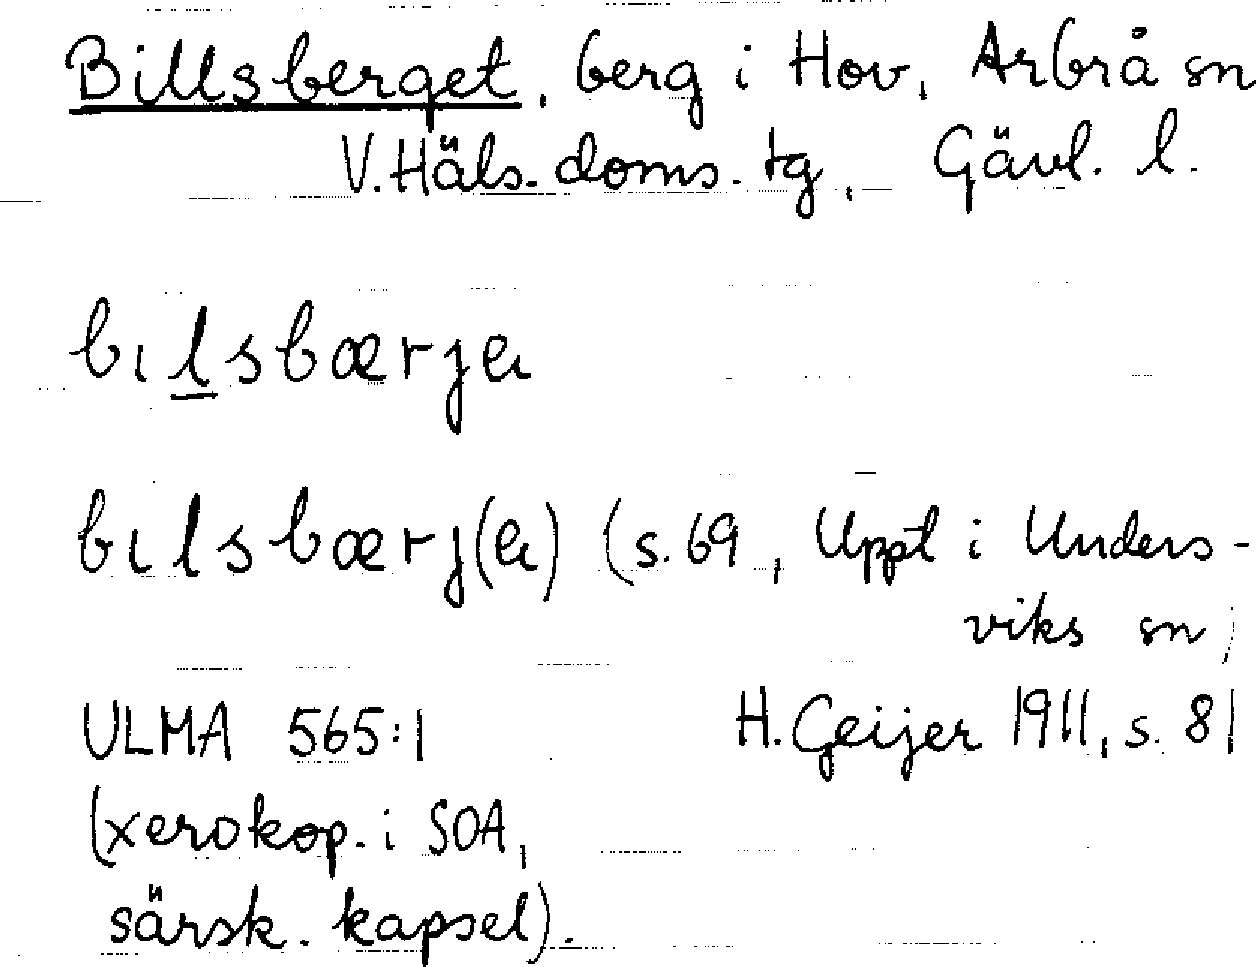 Billsberget, berg i Hov, Arbrå sn
V.Häls. doms. tg, Gävl. l.
bılsbærjeı
bılsbærj(eı) (s. 69, Uppt i Unders-
viks sn;
ULMA 565:1 H. Geijer 1911, s. 81
(xerokop. i SOA,
särsk. kapsel).